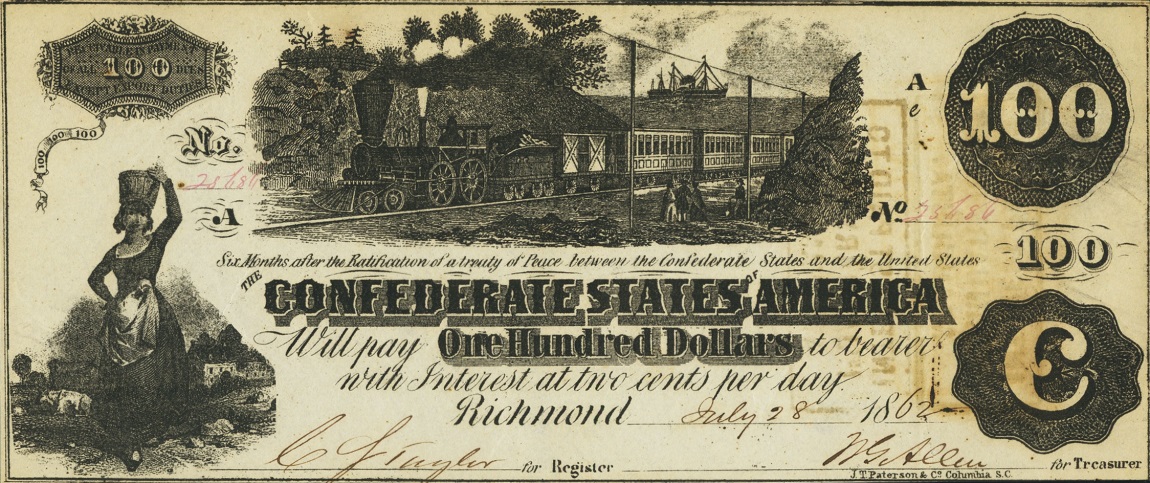 RECEIVABLE IN PAYMENT
OF ALL 100 DUES
EXCEPT EXPORT DUTIES
100 100 100
No.
28686
A
A
e
100
No 28686
100
Six Months after the Ratification of a treaty of Peace between the Confederate States and the United States
THE CONFEDERATE STATES OF AMERICA
Will pay One Hundred Dollars to bearer
with Interest at two cents per day
Richmond July 28 1862
C
for Register
for Treasurer
J.T. Paterson & Co. Columbia S.C.